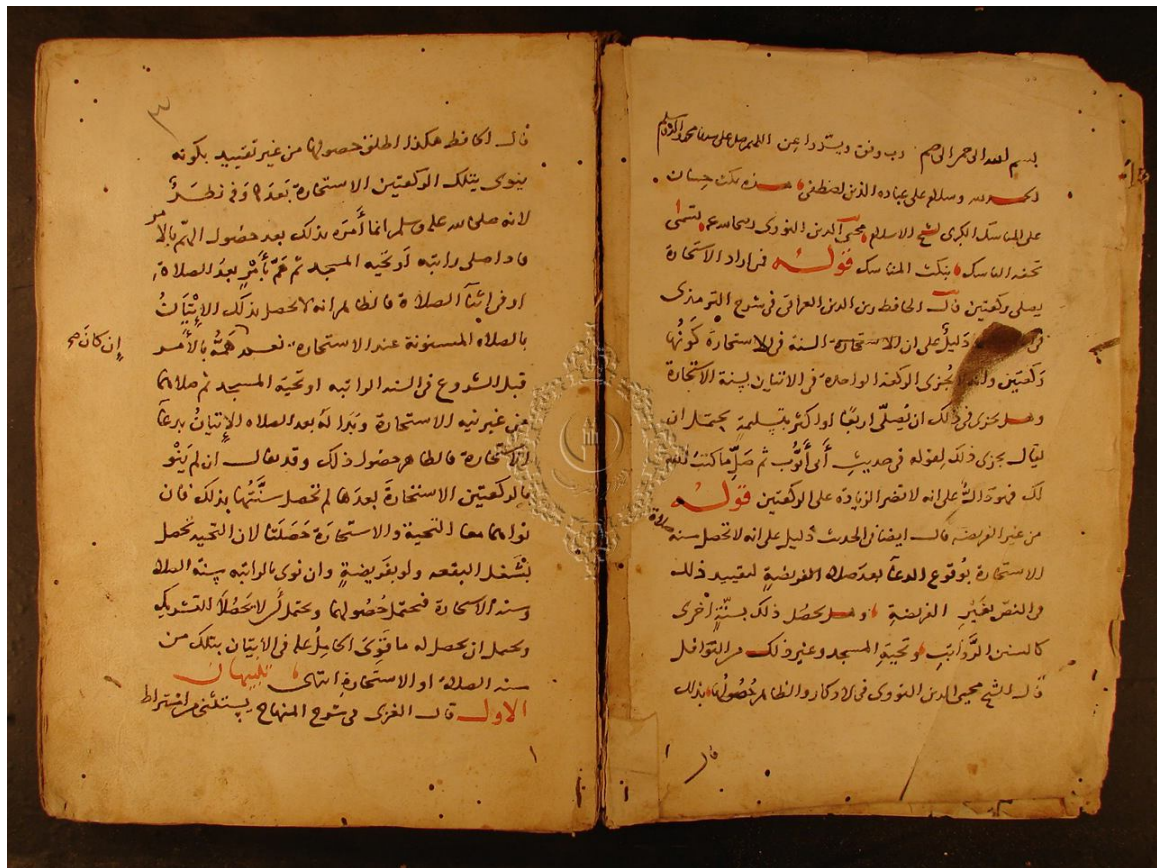 بسم الله الرحمن الرحيم رب وفق ويسر واعن اللهم صل على سيدنا محمد واله وسلم
الحمد لله وسلام على عباده الذين اصطفى هذه نكت حسان
على المناسك الكبرى لشيخ الاسلام محيي الدين النووي رحمه الله تسمى
تحفه الناسك بنكت المناسك قوله فمن اراد الاستخارة
يصلى ركعتين قال الحافظ زين الدين العراقى فى شرح الترمذى
فى دَليلٌ على ان الاستخارة السنة فى الاستخارة كَونُها
ركعتين وانه لا تُجزى الركعة الواحدة فى الاتيان بسنة الاستخارة
وهل يجزى فى ذلك ان يُصلّى اربعًا او اكثر بتسليمةٍ يحتمل ان
يقال يجزى ذلك لقوله فى حديثِ أبى أيُّوب ثم صَلِّ ما كتبَ الله
لك فهو دَالٌّ على انه لا تضر الزيادة على الركعتين قوله
من غير الفريضه قال ايضا فى الحدث دَليل على انه لا تحصل سنة صلاة
الاستخارة بوُقوع الدعَآ بعدَ صلاة الفريضةِ لتقييد ذلك
فى النص بغَيْرِ الفريضة وهل يحصُل ذلك بسنّةٍ أخرى
كالسنن الرَّواتِب وتحيةِ المسجد وغير ذلك من النوافل
قال الشيخ محيي الدين النووى فى الاذكار والظاهر حُصُولُها بذلك
قال
١
٣
قال الحافظ هكذا اطلق حصولها من غير تقييد بكونه
ينوى بتلك الركعتين الاستخارة بَعدَها وَفى نظرٌ
لانه صلى الله عليه وسلم انما أمَرَه بذلك بعد حصُول الهمّ بالأمر
فاذا صلى راتبه أو تحيه المسجد ثم هَمَّ بأَمْرٍ بعدَ الصلاة
او فى اثنآ الصلاة فالظاهر انه لا تحصل بذلك الإتيَانُ
بالصلاه المسنونة عند الاستخارة نعم إن كان همُّه بالأمر
قبل الشروع فى السنه الراتبه او تحية المسجد ثم صلاها
من غير نيه الاستخارة وبَدا لهُ بعد الصلاه الإتيانُ بدعآ
الاستخارة فالظاهر حصُول ذلك وقد يقال ان لم يَنْوِ
بالركعتين الاستخارة بعدَها لم تحصل سنَّتُها بذلك فان
نواهما معا التحية والاستخارَة حَصَلَتا لان التحيه تحصل
بشَغل البقعه ولو بفريضةٍ وان نوى بالراتبه سنة الصلاه
وسنة الاستخارة فيحتمل حُصُولهما ويحتمل أن لا يَحصُلا للتشريك
ويحتمل ان يحصل له ما قَوِىَ الحامِلُ عليه فى الاتيان بتلك من
سنه الصلاة او الاستخارة انتهى تنبيهان
الاول قال الغزى فى شرح المنهاج يستثنى من اشتراط
إن كان صح
١